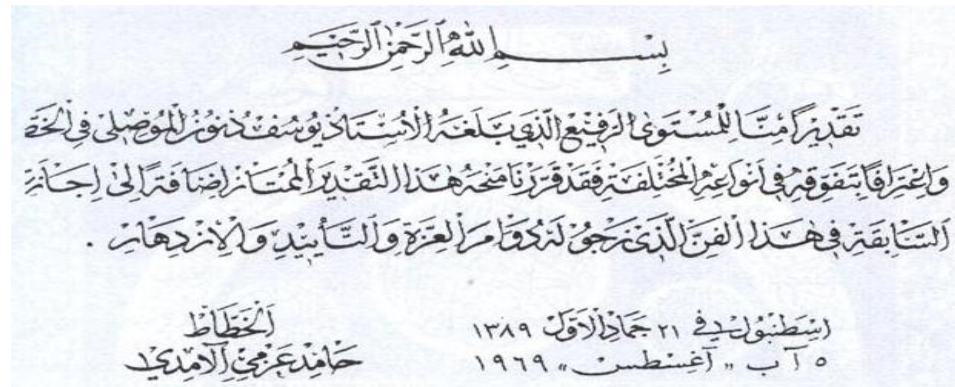 بِسْمِ اللهِ الرَّحْمٰنِ الرَّحِيْمِ
تقديراً منا للمستوى الرفيع الذي بلغه الأستاذ يوسف ذنون الموصلي في الخط
واعترافاً بتفوقه في أنواعه المختلفة فقد قررنا منحه هذا التقدير الممتاز إضافة إلى إجازته
السابقة في هذا الفن الذي نرجو له دوام العزة والتأييد والازدهار .
إسطنبول في ٢١ جمادالأول ١٣٨٩
٥ آب " أغسطس " ١٩٦٩
الخطاط
حامد عزمي الآمدي